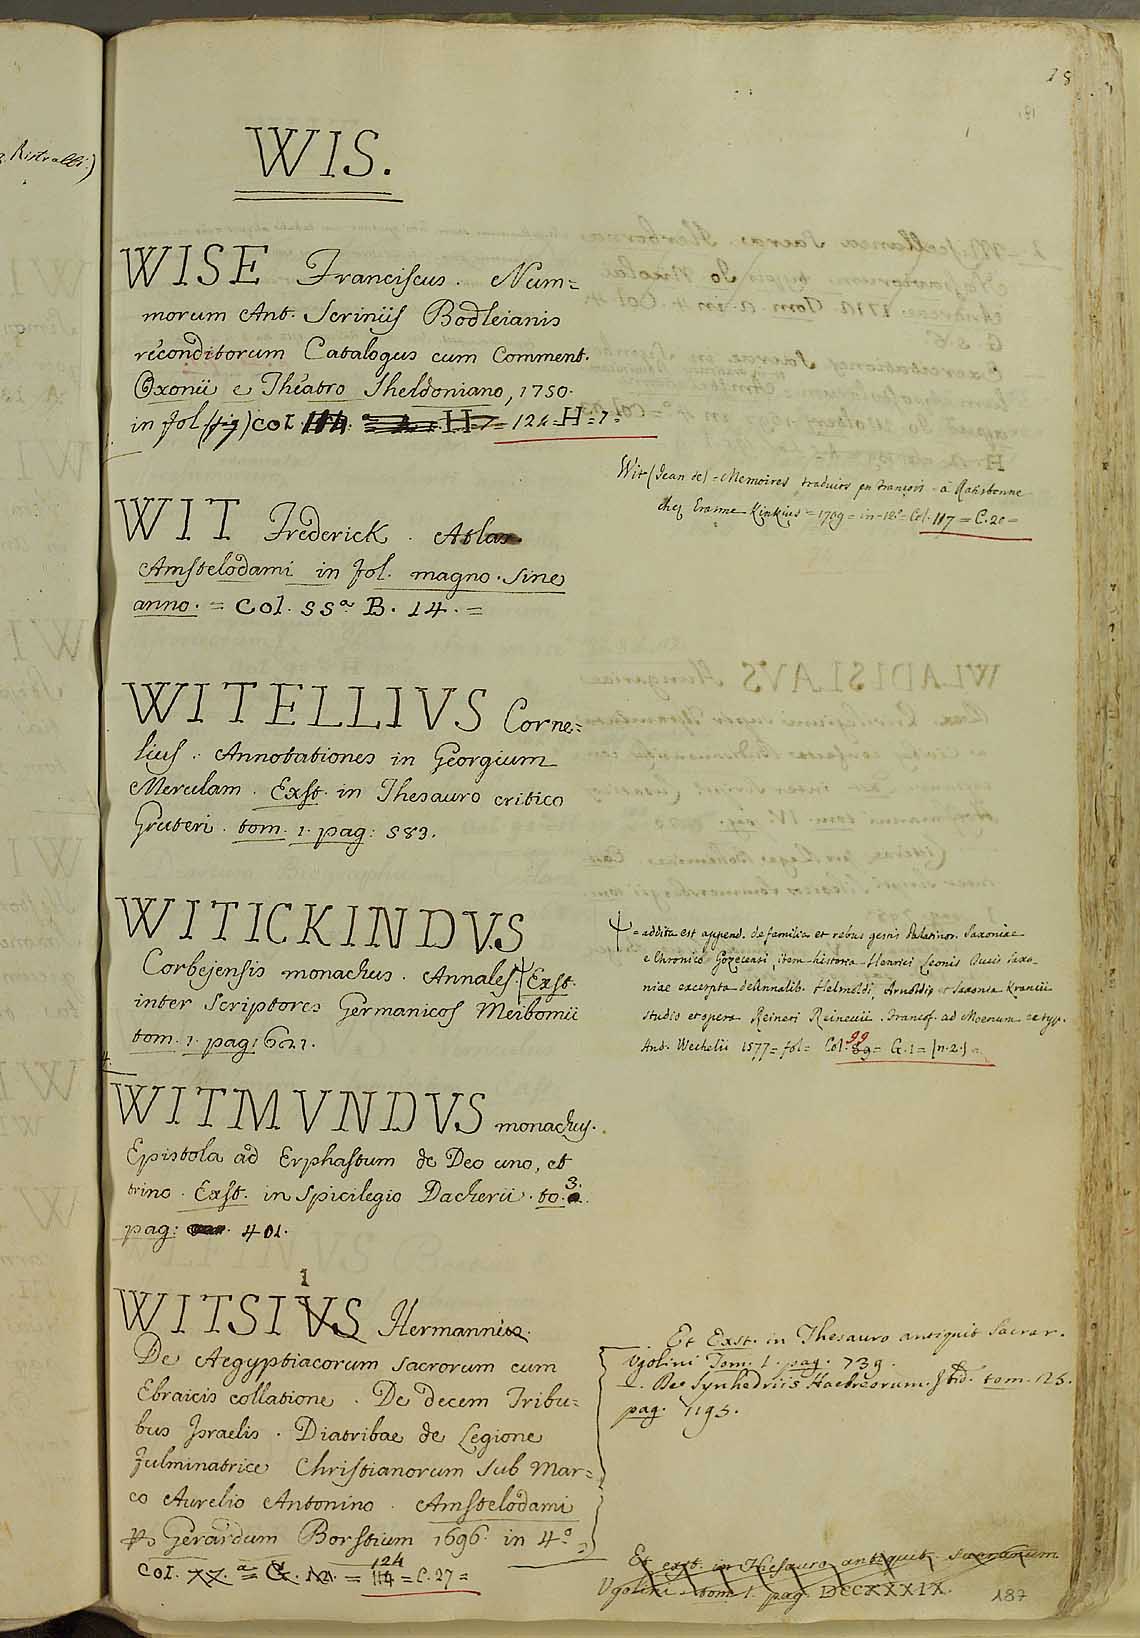 WIS.
WISE Franciscus. Num=
morum Ant. Scriniis Bodleianis
reconditorum Catalogus cum Comment.
Oxonii e Theatro Sheldoniano, 1750.
in fol. col. 124 = H = 7 =
WIT Frederick. Atlas
Amstelodami in fol. magno. sine
anno. = Col. SSa B. 14. =
WITELLIVS Corne=
lius. Annotationes in Georgium
Merulam. Exst. in Thesauro critico
Gruteri. tom. 1. pag: 583.
WITICKINDVS
Corbejensis monachus. Annales. Ψ Exst.
inter Scriptores Germanicos Meibomii
tom. 1. pag: 621.
WITMVNDVS monachus.
Epistola ad Erphastum de Deo uno, et
trino. Exst. in spicilegio Dacherii. to. 3.
pag: 401.
1
WITSIVS Hermannus.
De Aegyptiacorum sacrorum cum
Ebraicis collatione. De decem Tribu=
bus Israelis. Diatribae de Legione
fulminatrice Christianorum sub Mar=
co Aurelio Antonino. Amstelodami
Gerardum Borstium 1696. in 4°.
124
Col. = 114 = C. 27 =
Wit (Jean de) = Memoires traduits en françois - à Ratisbonne
chez Erasme Kinkius = 1709 = in-12° = Col. 117 = C. 20 =
Ψ = addita est append. de familia et rebus gestis Palatinor. Saxoniae
e Chronico Gozecensi, item historia Henrici Leonis Ducis Saxo-
niae excerpta de Annalib. Helmoldi, Arnoldi, et Saxonia Krancii
studio et opera Reineri Reineccii. Francof. ad Moenum ex typ.
And. Wechelii 1577 = fol = Col. 99 = G. 1 = (n. 2.)
Et Exst. in Thesauro antiquit Sacrar.
Vgolini Tom. 1. pag. 739.
2. De Synhedriis Haebreorum. Ibid. tom. 25.
pag. 1195.
Et exst. in Thesauro antiquit. sacrarum
Vgolini tom 1. pag. DCCXXXIX.
187